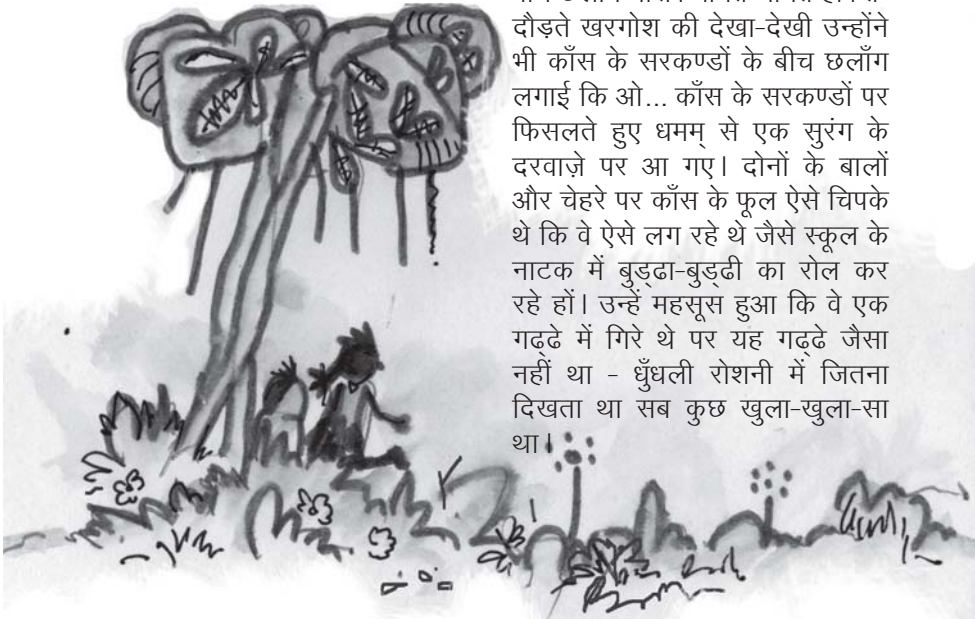 दौड़ते खरगोश की देखा-देखी उन्होंने
भी काँस के सरकण्डों के बीच छलाँग
लगाई कि ओ... काँस के सरकण्डों पर
फिसलते हुए धमम् से एक सुरंग के
दरवाज़े पर आ गए। दोनों के बालों
और चेहरे पर काँस के फूल ऐसे चिपके
थे कि वे ऐसे लग रहे थे जैसे स्कूल के
नाटक में बुड्ढा-बुड्ढी का रोल कर
रहे हों। उन्हें महसूस हुआ कि वे एक
गढ्ढे में गिरे थे पर यह गढ्ढे जैसा
नहीं था - धुँधली रोशनी में जितना
दिखता था सब कुछ खुला-खुला-सा
था।